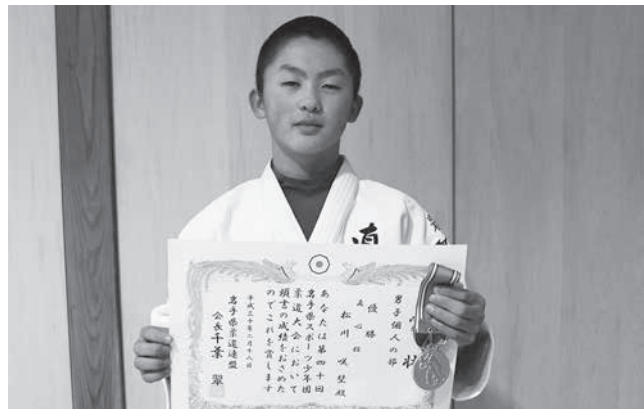 状
男子個人の部
優勝
直心館
松川咲埜殿
あなたは第四十回
岩手県スポーツ少年団
柔道大会において
頭書の成績をおさめた
のでこれを賞します
平成三十年二月十八日
岩手県柔道連盟
会長千葉翠
直